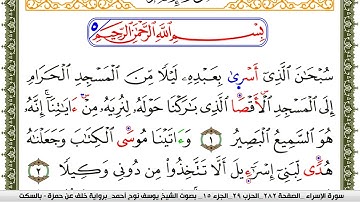 بِسْمِ اللَّهِ الرَّحْمَٰنِ الرَّحِيمِ
سُبْحَانَ الَّذِي أَسْرَىٰ بِعَبْدِهِ لَيْلًا مِّنَ الْمَسْجِدِ الْحَرَامِ
إِلَى الْمَسْجِدِ الْأَقْصَا الَّذِي بَارَكْنَا حَوْلَهُ لِنُرِيَهُ مِنْ ءَايَاتِنَا إِنَّهُ
هُوَ السَّمِيعُ الْبَصِيرُ ١ وَءَاتَيْنَا مُوسَى الْكِتَابَ وَجَعَلْنَاهُ
هُدًى لِّبَنِي إِسْرَاءِيلَ أَلَّا تَتَّخِذُوا مِن دُونِي وَكِيلًا ٢
سورة الإسراء _ الصفحة ٢٨٢_ الحزب ٢٩_ الجزء ١٥ _ بصوت الشيخ يوسف نوح أحمد_ برواية خلف عن حمزة - بالسكت